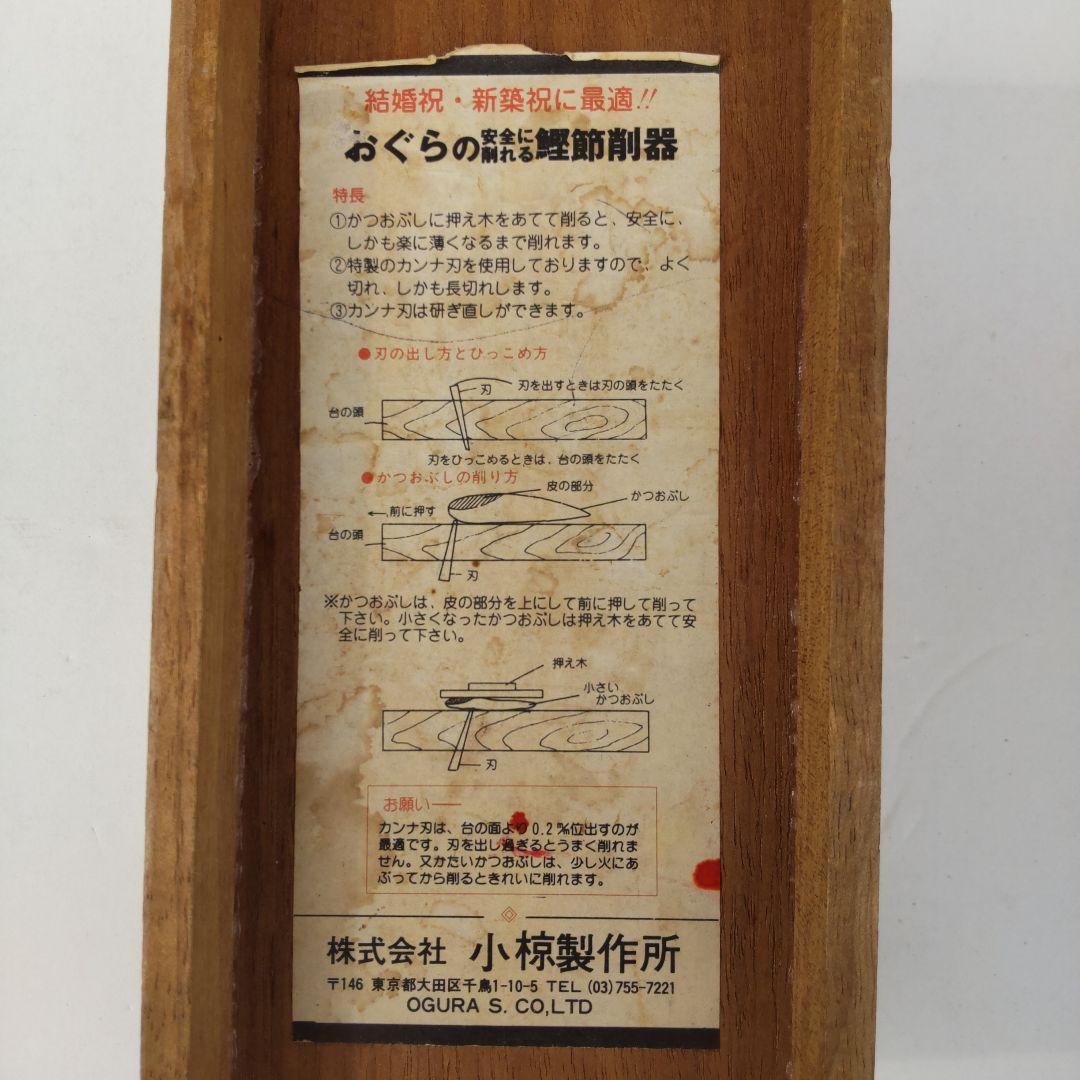 結婚祝・新築祝に最適!!
おぐらの安全に削れる鰹節削器
特長
①かつおぶしに押え木をあてて削ると、安全に、
しかも楽に薄くなるまで削れます。
②特製のカンナ刃を使用しておりますので、よく
切れ、しかも長切れします。
③カンナ刃は研ぎ直しができます。
●刃の出し方とひっこめ方
刃
刃を出すときは刃の頭をたたく
台の頭
刃をひっこめるときは、台の頭をたたく
●かつおぶしの削り方
皮の部分
かつおぶし
前に押す
台の頭
刃
※かつおぶしは、皮の部分を上にして前に押して削って
下さい。小さくなったかつおぶしは押え木をあてて安
全に削って下さい。
押え木
小さい
かつおぶし
刃
お願い
カンナ刃は、台の面より0.2㎜位出すのが
最適です。刃を出し過ぎるとうまく削れま
せん。又かたいかつおぶしは、少し火にあ
ぶってから削るときれいに削れます。
株式会社 小椋製作所
〒146 東京都大田区千鳥1-10-5 TEL (03)755-7221
OGURA S. CO,LTD